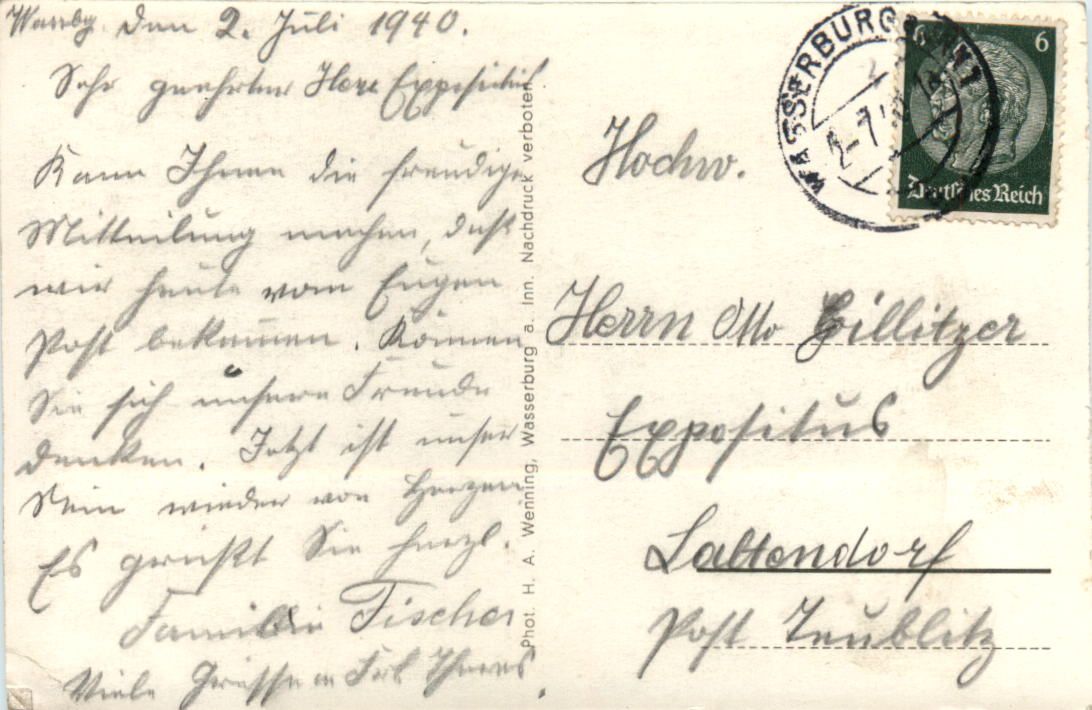 Wassbg. den 2. Juli 1940.
Sehr geehrter Herr Expositus!
Kann Ihnen die freudige
Mitteilung machen, daß
wir heute vom Eugen
Post bekamen. Können
Sie sich unsere Freude
denken. Jetzt ist unser
wieder von Herzen
Es grüßt Sie herzl.
Familie Fischer
Viele Grüsse an Frl. Theres
Phot. H. A. Wenning, Wasserburg a. Inn. Nachdruck verboten
WASSERBURG (INN) 1
2.-7.40
6 6
Deutsches Reich
Hochw.
Herrn Otto Gillitzer
Expositus
Post Teublitz